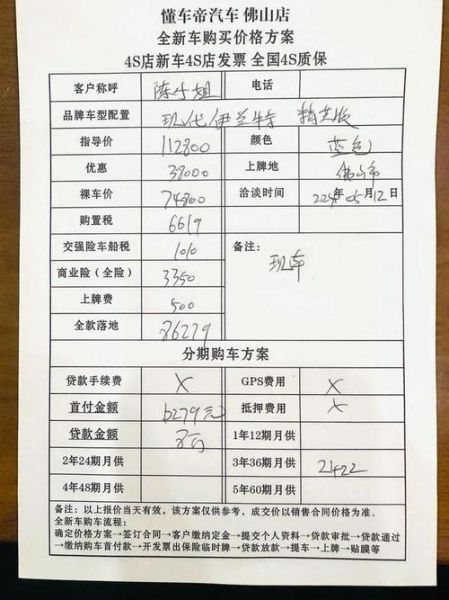 懂车帝汽车 佛山店
全新车购买价格方案
4S店新车4S店发票 全国4S质保
客户称呼 陈小姐 电话
品牌车型配置 现代伊兰特 精英版
指导价 112800 颜色 蓝色
优惠 38000 上牌地 佛山市
裸车价 74800 洽谈时间 2024年05月12日
购置税 6619
交强险车船税 1010 备注：
商业险（全险） 3350 现车
上牌费 500
全款落地 86279
分期购车方案
贷款手续费 X GPS费用 X
首付金额 6279元 抵押费用 X
贷款金额 8万 1年12期月供
2年24期月供 3年36期月供 2422
4年48期月供 5年60期月供
备注：以上报价当天有效，该方案仅供参考，成交价以销售合同价格为准。
全新车购车流程：
确定价格方案→签订合同→客户缴纳定金→提交个人资料→贷款审批→贷款通过
→缴纳购车首付款→开发票出保险临时牌→贷款放款→提车→上牌→贴膜等